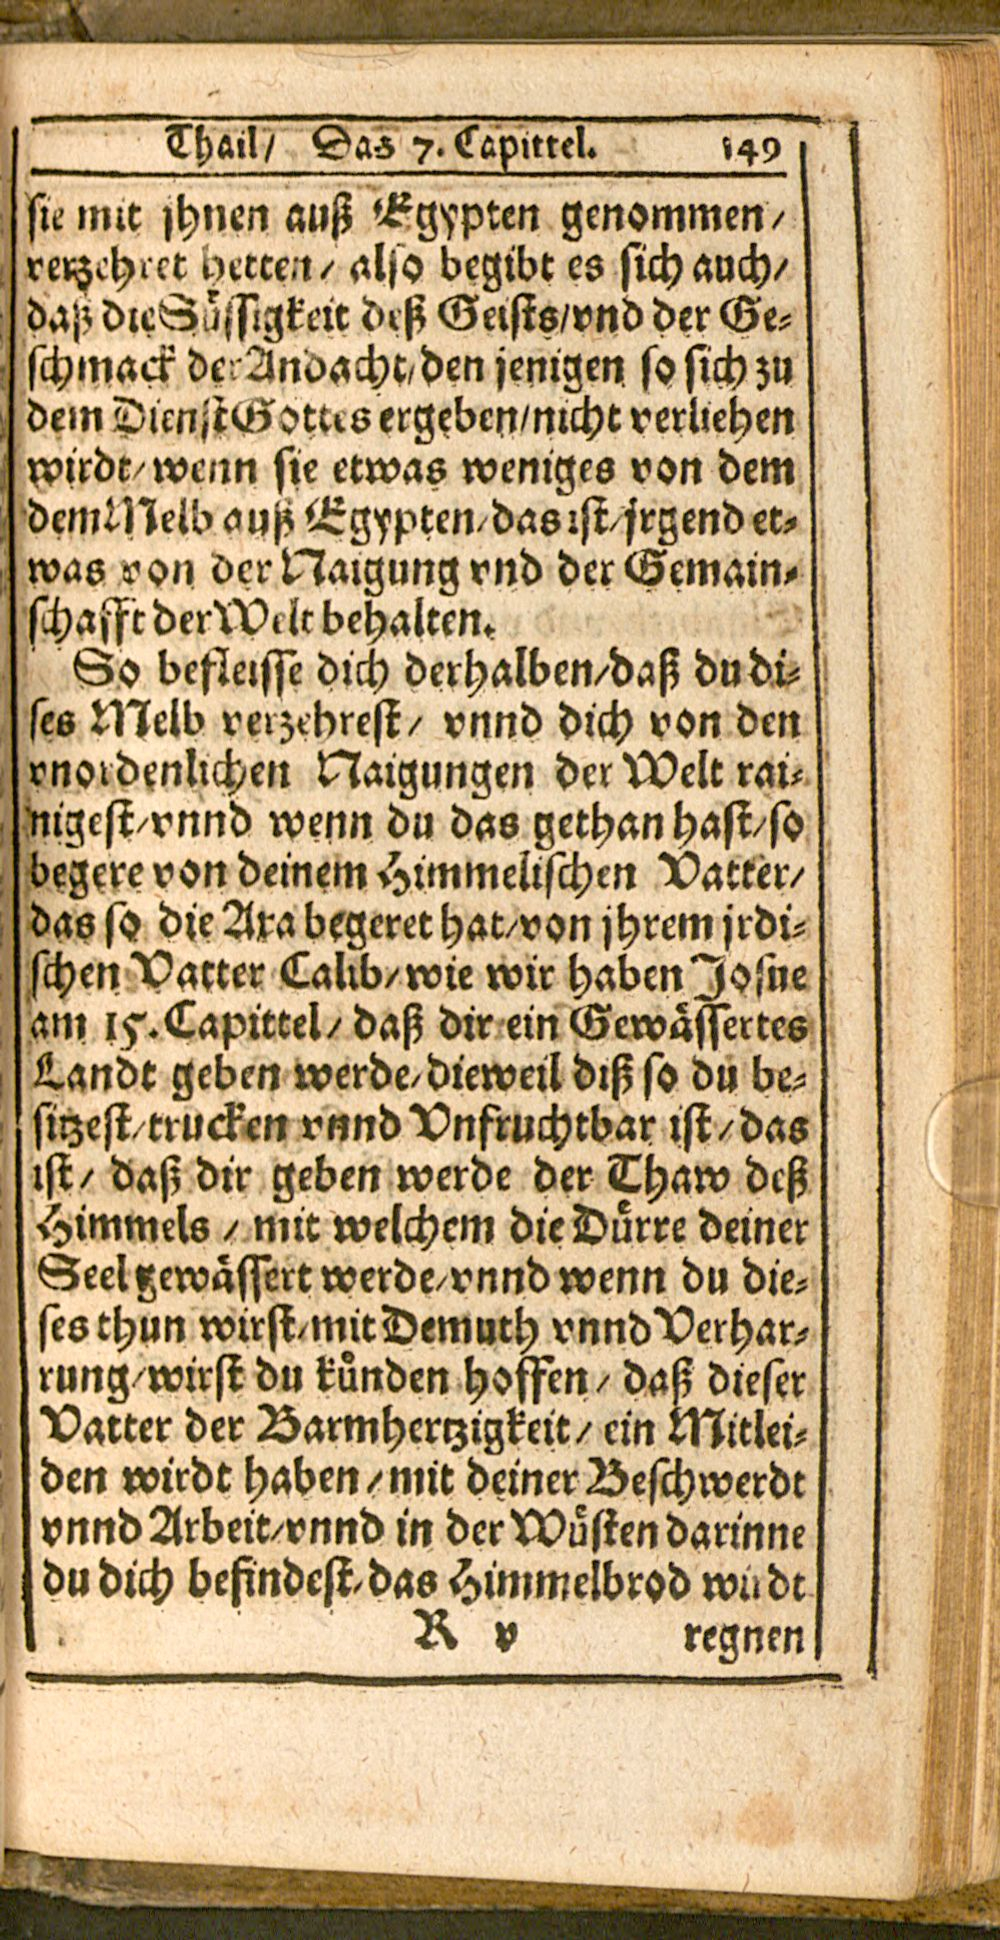 Thail/ Das 7. Capittel. 149
sie mit jhnen auß Egypten genommen/
verzehret hetten/ also begibt es sich auch/
daß die Süssigkeit deß Geists/vnd der Ge-
schmack der Andacht/den jenigen so sich zu
dem Dienst Gottes ergeben/nicht verliehen
wirdt/wenn sie etwas weniges von dem
dem Melb auß Egypten/das ist/jrgend et-
was von der Naigung vnd der Gemain-
schafft der Welt behalten.
So befleisse dich derhalben/daß du di-
ses Melb verzehrest/ vnnd dich von den
vnordenlichen Naigungen der Welt rai-
nigest/vnnd wenn du das gethan hast/so
begere von deinem Himmelischen Vatter/
das so die Axa begeret hat/von jhrem jrdi-
schen Vatter Calib/wie wir haben Josue
am 15. Capittel/ daß dir ein Gewässertes
Landt geben werde/dieweil diß so du be-
sitzest/trucken vnnd Vnfruchtbar ist/das
ist/ daß dir geben werde der Thaw deß
Himmels/ mit welchem die Dürre deiner
Seel gewässert werde/vnnd wenn du die-
ses thun wirst/mit Demuth vnnd Verhar-
rung/wirst du kůnden hoffen/ daß dieser
Vatter der Barmhertzigkeit/ ein Mitlei-
den wirdt haben/mit deiner Beschwerdt
vnnd Arbeit/vnnd in der Wüsten darinne
du dich befindest/das Himmelbrod wirdt
R v regnen